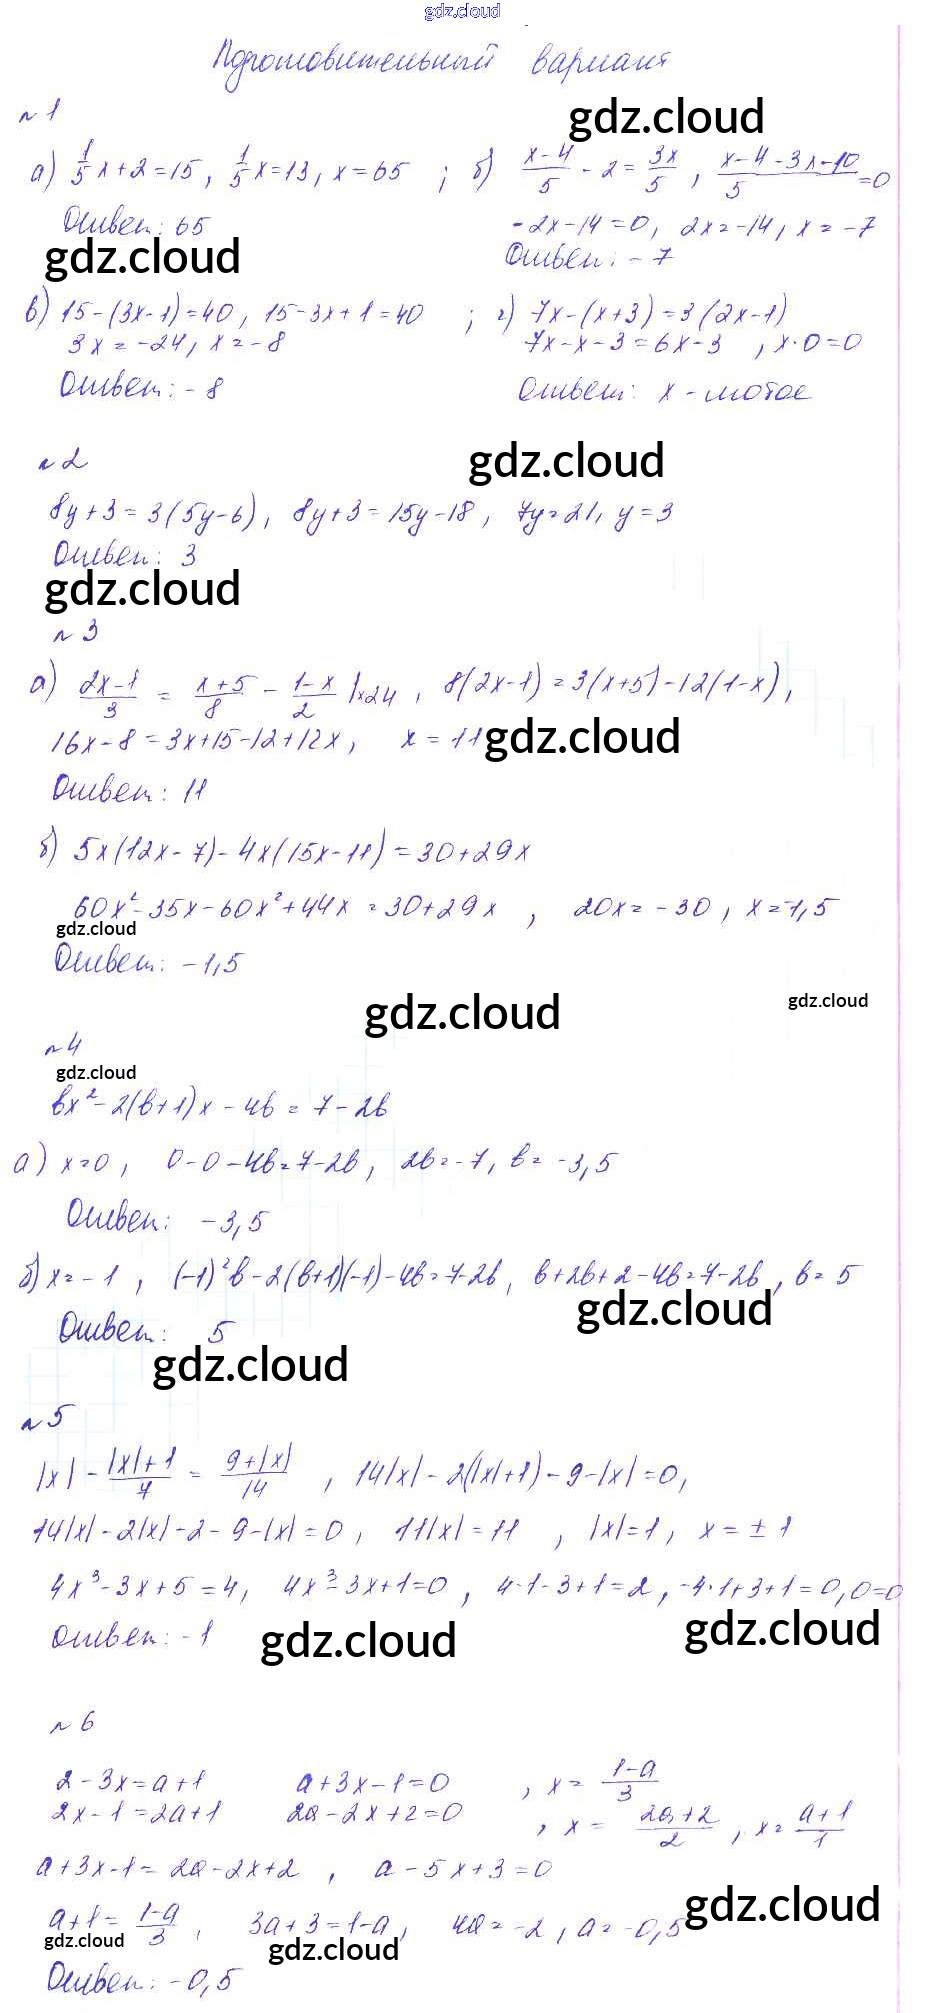 gdz.cloud
Подготовительный вариант
№1
gdz.cloud
а) 1/5 x + 2 = 15, 1/5 x = 13, x = 65 ; б) (x-4)/5 - 2 = 3x/5, (x-4-3x-10)/5 = 0
Ответ: 65 -2x-14=0, 2x=-14, x=-7
gdz.cloud Ответ: -7
в) 15-(3x-1)=40, 15-3x+1=40 ; г) 7x-(x+3)=3(2x-1)
3x=-24, x=-8 7x-x-3=6x-3, x·0=0
Ответ: -8 Ответ: x - любое
№2 gdz.cloud
8y+3=3(5y-6), 8y+3=15y-18, 7y=21, y=3
Ответ: 3
gdz.cloud
№3
а) (2x-1)/3 = (x+5)/8 - (1-x)/2 |×24, 8(2x-1)=3(x+5)-12(1-x),
16x-8=3x+15-12+12x, x=11 gdz.cloud
Ответ: 11
б) 5x(12x-7)-4x(15x-11)=30+29x
60x²-35x-60x²+44x=30+29x, 20x=-30, x=-1,5
gdz.cloud
Ответ: -1,5
gdz.cloud gdz.cloud
№4
gdz.cloud
bx²-2(b+1)x-4b=7-2b
а) x=0, 0-0-4b=7-2b, 2b=-7, b=-3,5
Ответ: -3,5
б) x=-1, (-1)²b-2(b+1)(-1)-4b=7-2b, b+2b+2-4b=7-2b, b=5
gdz.cloud
Ответ: 5
gdz.cloud
№5
|x| - (|x|+1)/7 = (9+|x|)/14, 14|x|-2(|x|+1)-9-|x|=0,
14|x|-2|x|-2-9-|x|=0, 11|x|=11, |x|=1, x=±1
4x³-3x+5=4, 4x³-3x+1=0, 4·1-3+1=2, -4·1+3+1=0, 0=0
Ответ: -1 gdz.cloud gdz.cloud
№6
2-3x=a+1 a+3x-1=0, x=(1-a)/3
2x-1=2a+1 2a-2x+2=0, x=(2a+2)/2, x=(a+1)/1
a+3x-1=2a-2x+2, a-5x+3=0
gdz.cloud
a+1=(1-a)/3, 3a+3=1-a, 4a=-2, a=-0,5
gdz.cloud gdz.cloud
Ответ: -0,5